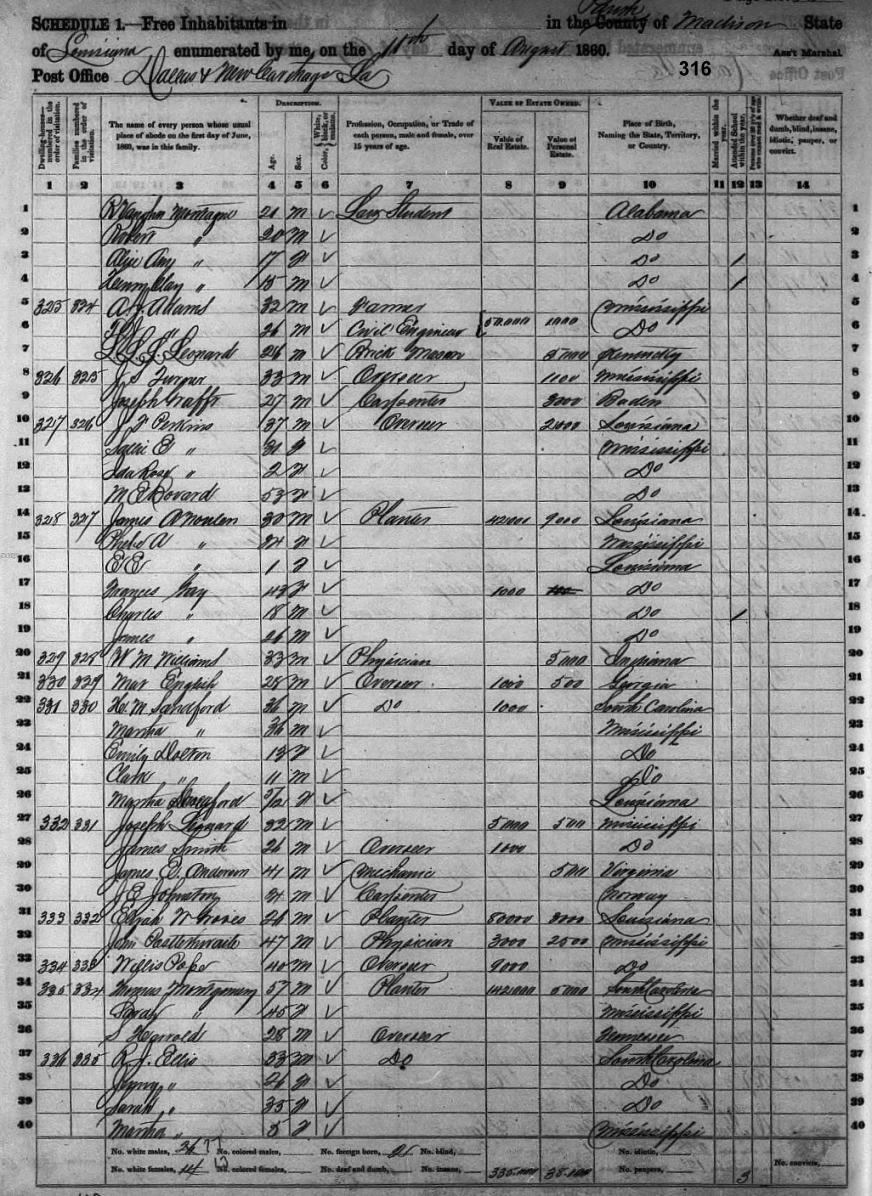 SCHEDULE 1.—Free Inhabitants in in the County Parish of Madison State
of Louisiana enumerated by me, on the 11th day of August 1860. Ass't Marshal.
Post Office Dallas & New Carthage La 316
Dwelling-houses—numbered in the order of visitation. Families numbered in the order of visitation. The name of every person whose usual place of abode on the first day of June, 1860, was in this family. Description. Age. Sex. Color, White, black, or mulatto. Profession, Occupation, or Trade of each person, male and female, over 15 years of age. Value of Estate Owned. Value of Real Estate. Value of Personal Estate. Place of Birth, Naming the State, Territory, or Country. Married within the year. Attended School within the year. Persons over 20 y'rs of age who cannot read & write. Whether deaf and dumb, blind, insane, idiotic, pauper, or convict.
1 2 3 4 5 6 7 8 9 10 11 12 13 14
1 R Vaughn Montague 21 m ✓ Law Student Alabama 1
2 Robert " 20 m ✓ Do 2
3 Alice Amy " 17 f ✓ Do / 3
4 Henry Clay " 15 m ✓ Do / 4
5 325 324 A. J. Adams 32 m ✓ Farmer Mississippi 5
6 " 26 m ✓ Civil Engineer { 50,000 1000 Do 6
7 Leonard 26 m ✓ Brick Mason 5,000 Kentucky 7
8 326 325 J. S Turner 33 m ✓ Overseer 1100 Mississippi 8
9 Joseph 27 m ✓ Carpenter 3000 Baden 9
10 327 326 J. F Perkins 37 m ✓ Overseer 2000 Louisiana 10
11 Sallie E " 31 f ✓ Mississippi 11
12 Ida Rosa " 2 f ✓ Do 12
13 M. E Bovard 53 f ✓ Do 13
14 328 327 James A 30 m ✓ Planter 42000 9000 Louisiana 14
15 Phebe A " 24 f ✓ Mississippi 15
16 E E " 1 f ✓ Louisiana 16
17 Frances Gay 43 f ✓ 1000 Do 17
18 Charles " 18 m ✓ Do / 18
19 James " 26 m ✓ Do 19
20 329 328 W M Williams 33 m ✓ Physician 5,000 Indiana 20
21 330 329 Mar English 28 m ✓ Overseer 1000 500 Georgia 21
22 331 330 H. M Sandford 36 m ✓ Do 1000 South Carolina 22
23 Martha " 36 m ✓ Mississippi 23
24 Emily Dolton 13 f ✓ Do 24
25 Clark " 11 m ✓ Do 25
26 Martha f ✓ Louisiana 26
27 332 331 Joseph 32 m ✓ 5,000 500 Mississippi 27
28 James Smith 26 m ✓ Overseer 1000 Do 28
29 James E. Anderson 41 m ✓ Mechanic 500 Virginia 29
30 J E Johnston m ✓ Carpenter Norway 30
31 333 332 Elijah W Groves 26 m ✓ Planter 80000 8000 Louisiana 31
32 Jno Postlethwaite 47 m ✓ Physician 3000 2500 Mississippi 32
33 334 333 Willis Pope 40 m ✓ Overseer 9000 Do 33
34 335 334 Thomas Montgomery 57 m ✓ Planter 142000 5000 South Carolina 34
35 Sarah " 45 f ✓ Mississippi 35
36 S Harrold 28 m ✓ Overseer Tennessee 36
37 336 335 R. J. Ellis 33 m ✓ Do South Carolina 37
38 Jenny " 26 f ✓ Do 38
39 Sarah " 35 f ✓ Do 39
40 Martha " 5 f ✓ Mississippi 40
No. white males, 26 No. colored males, No. foreign born, 2 No. blind, No. idiotic, No. convicts,
No. white females, 14 No. colored females, No. deaf and dumb, No. insane, 335,000 38,100 No. paupers, 3